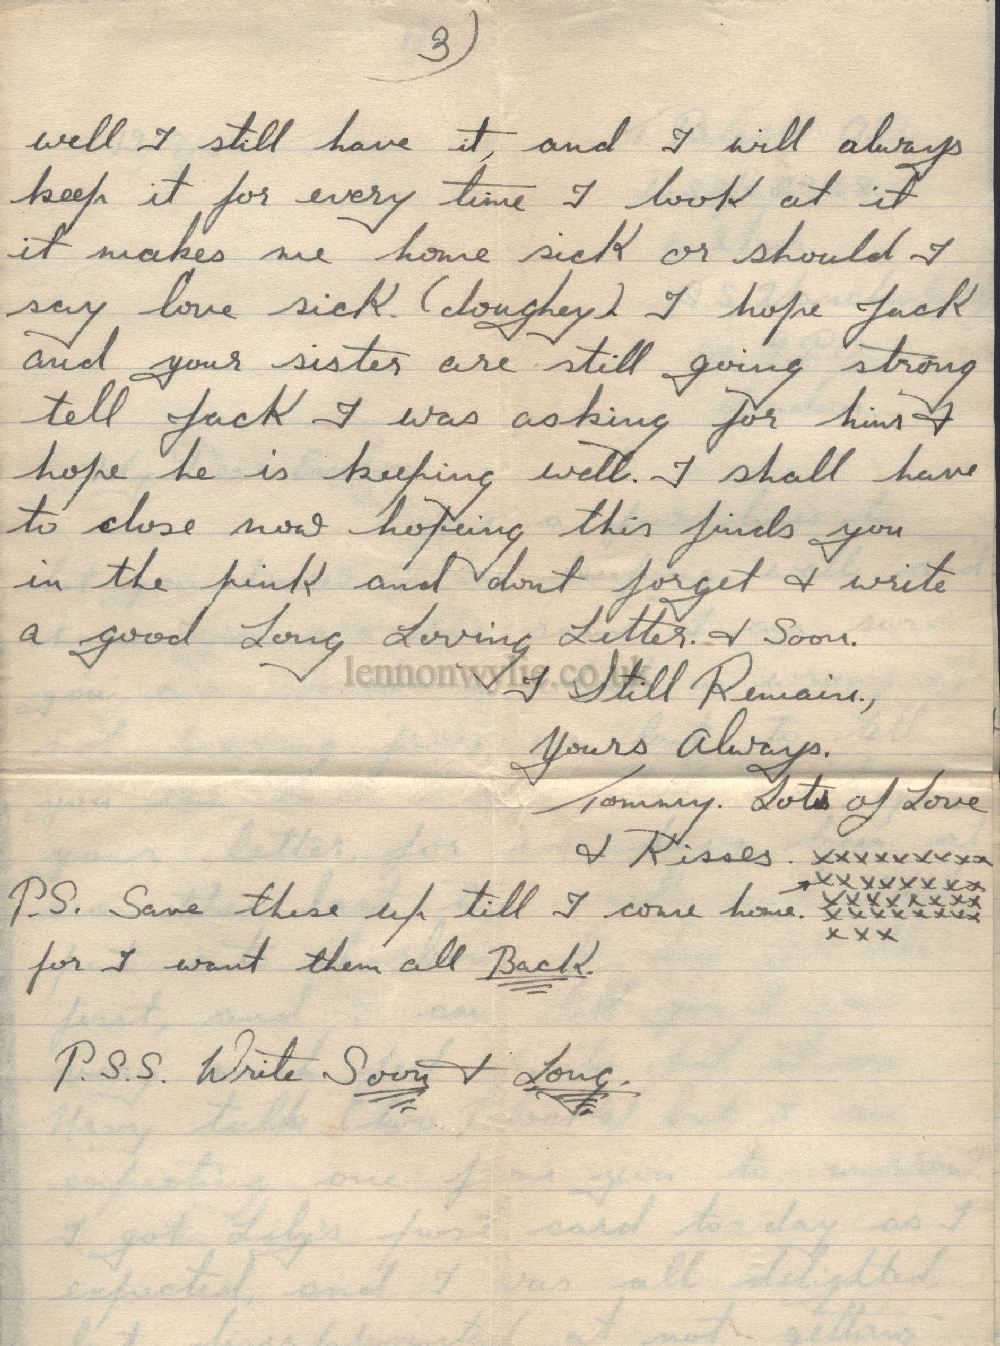 3)
well I still have it, and I will always
keep it for every time I look at it
it makes me home sick or should I
say love sick. (doughey) I hope Jack
and your sister are still going strong
tell Jack I was asking for him &
hope he is keeping well. I shall have
to close now hopeing this finds you
in the pink and dont forget & write
a good Long Loving Letter. & Soon.
lennonwylie.co.uk
I Still Remain,
Yours Always.
Tommy. Lots of Love
& Kisses. xxxxxxxxxx
xxxxxxxxx
P.S. Save these up till I come home. xxxxxxxxx
xxxxxxxxx
xxx
for I want them all Back.
P.S.S. Write Soon & Long.
expecting one from you to
I got Lily's post card to-day as I
expected, and I was all delighted
at not getting